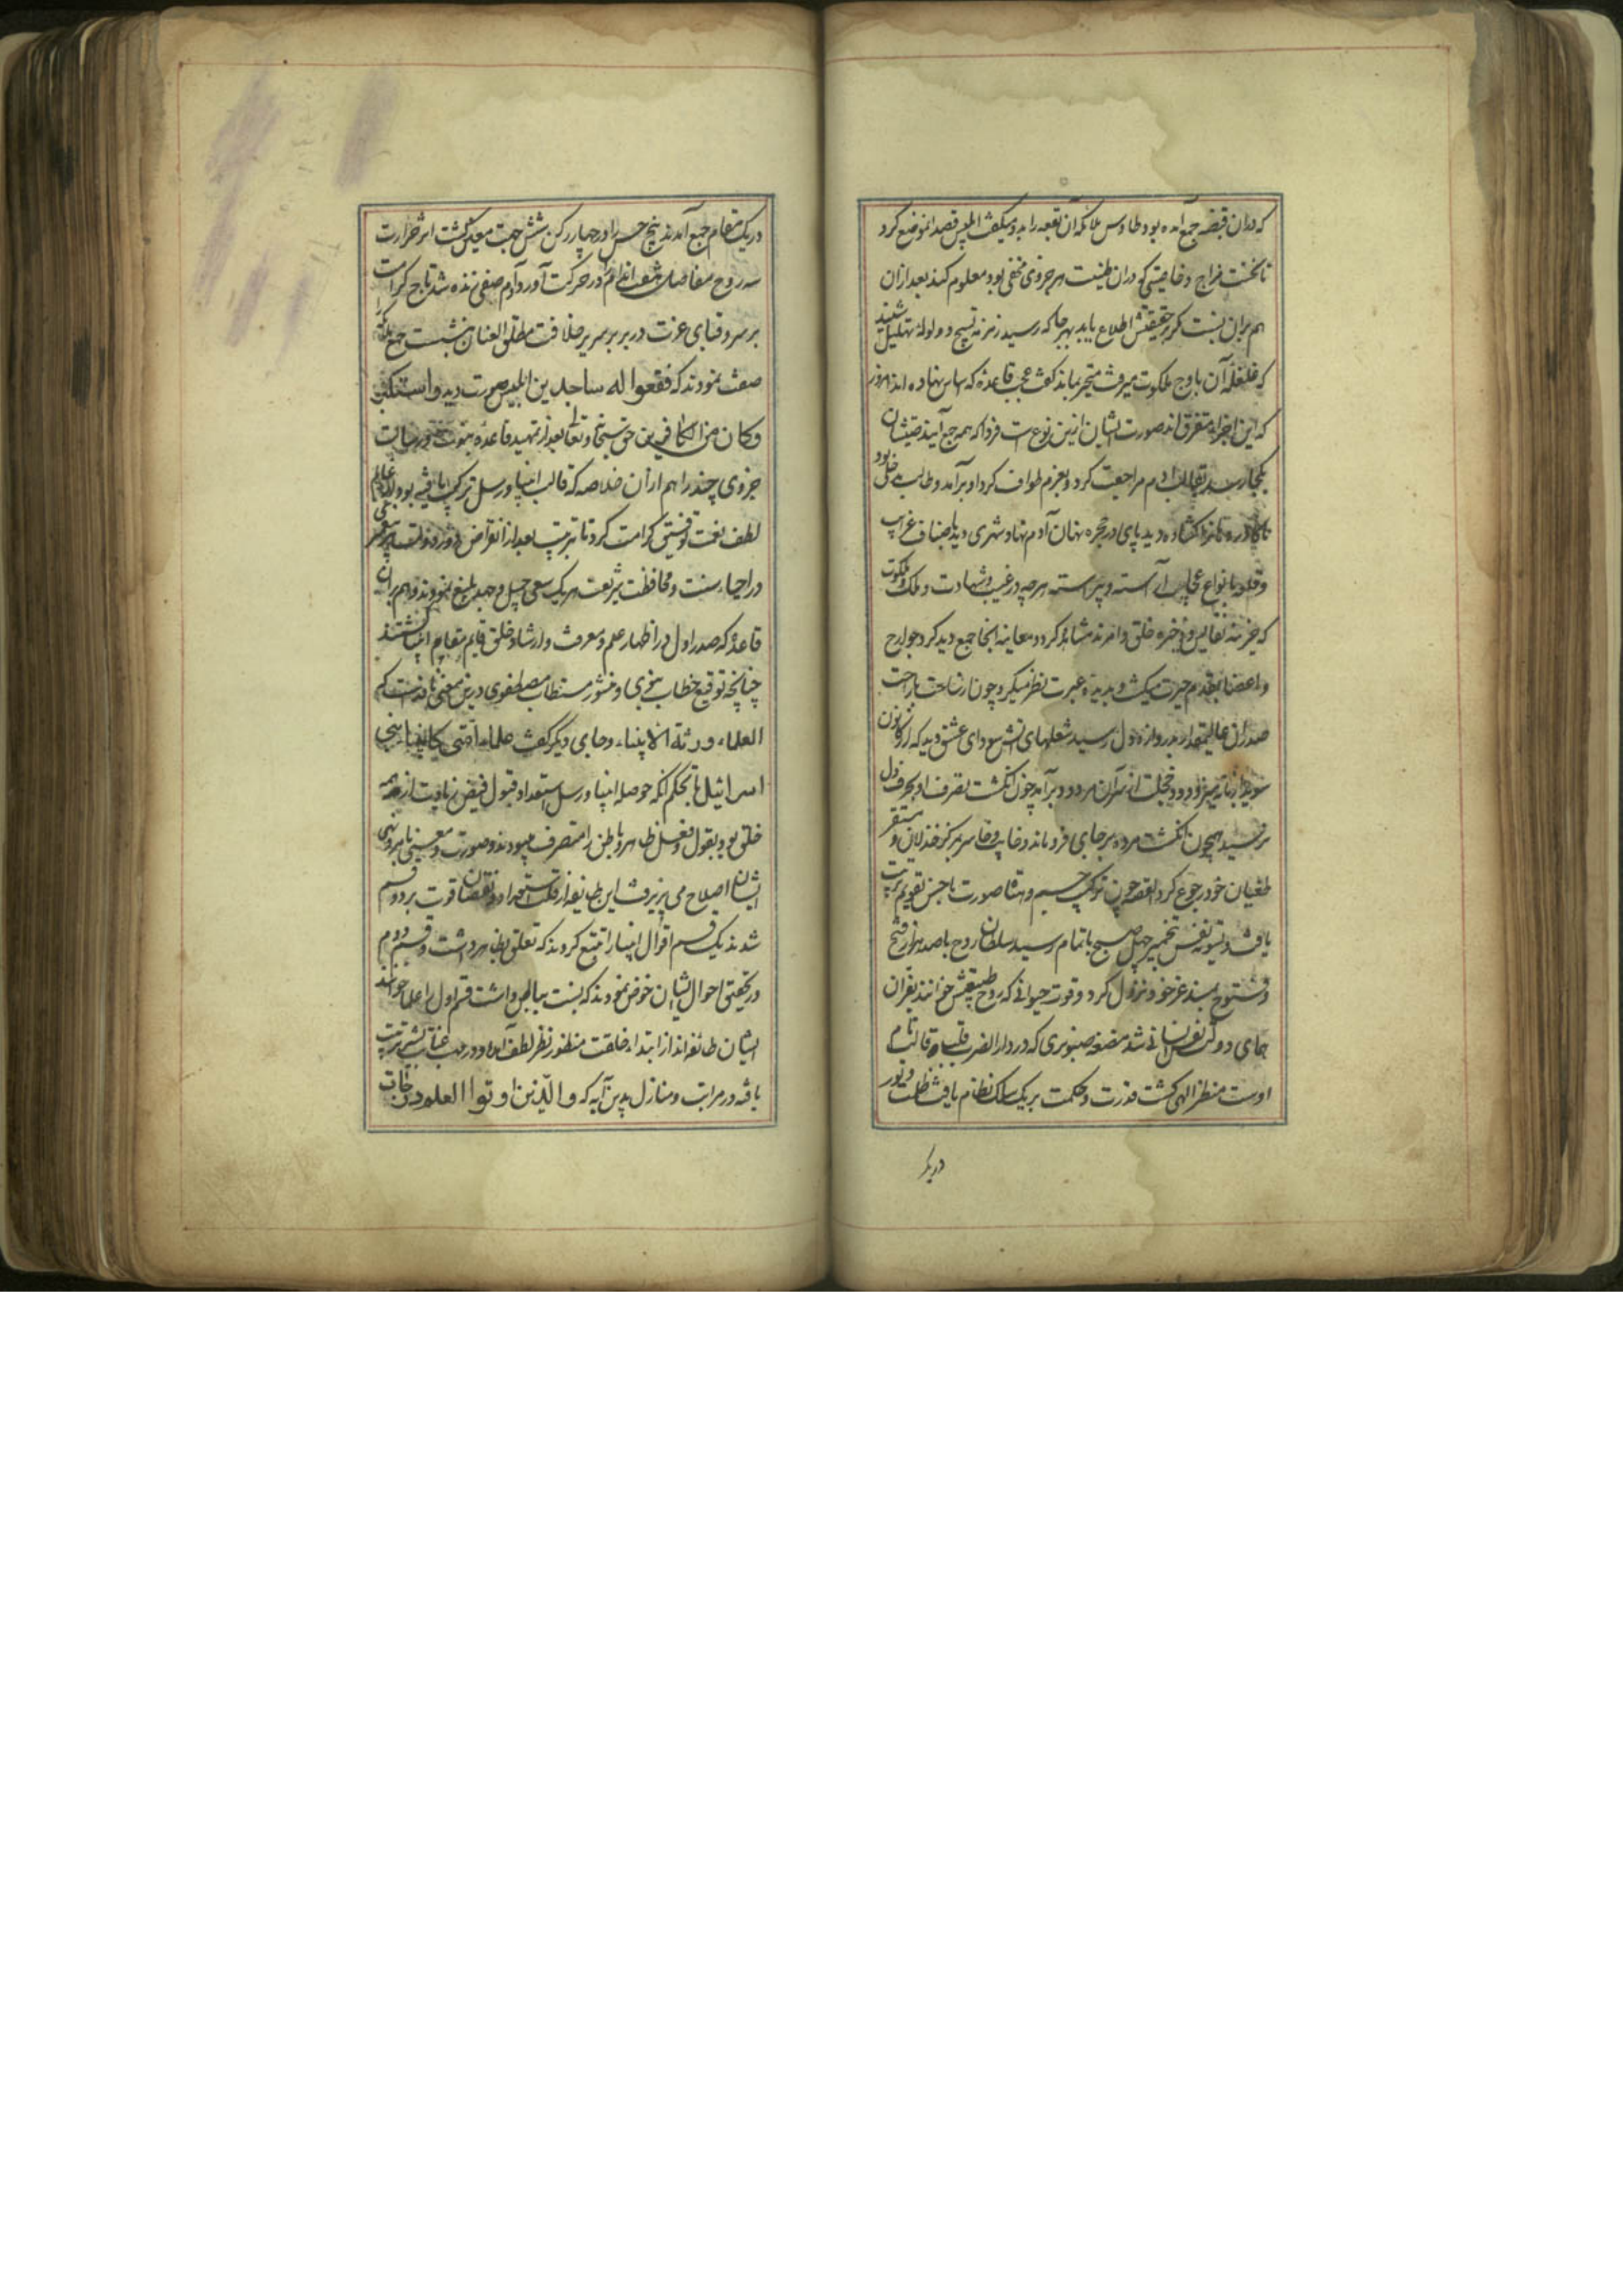 که دران قبضه جمع آمده بود طاوس ملائکه آن بقعه را بدو میکفت ابلیس قصد انموضع کرد
تا نخست مزاج و خاصیتی که دران طینت هر جزوی مخفی بود معلوم کند بعد ازان
هم بران نسبت کرد حقیقتش اطلاع یابد بهر جا که رسید زمزمه تسبیح و ولوله تهلیل شنید
که غلغله آن باوج ملکوت میرفت متحیر بماند کفت عجب قاعده که اساس نهاده اند امروز
که این اجزا متفرق اند صورت ایشان ازین نوع است فردا که همه جمع آیند صیتشان
بکجا رسد بقالب آدم مراجعت کرد و بعزم طواف کرد او برآمد و طالب خلی بود
ناکاه دره نازه کشاده دید پای در حجره نهان آدم نهاد شهری دید باصناف غرایب
و قلعه بانواع عجایب آراسته و پیراسته هر چه در غیب و شهادت و ملک و ملکوت
که خزینه نفایس و ذخیره خلق و امرند مشاهده کرد و معاینه انجا جمع دید کرد جوارح
و اعضا بقدم حیرت میکشت و بدیده عبرت نظر میکرد چون از ساحت باراحت
صدران عالیمقدار بدروازه دل رسید شعلهای آتش سودای عشق دید که از کانون
سویدا زبانه میزد و دود خجلت از سر آن مردود برآمد چون انکشت تصرف او بحرف دل
نرسید همچون انکشت مرده بر جای فرو ماند و خایب و خاسر بمرکز خذلان و مستقر
طغیان خود رجوع کرد القصه چون ترکیب جسم و هیات صورت باحسن تقویم ترتیب
یافت و تسویه نفس تخمیر چهل صبح باتمام رسید سلطان روح با صد هزار فتح
و فتوح بمسند عز خود نزول کرد و قوت حیوانی که روح طبیعیش خوانند بفران
همای دولت نفس انسانی شد مضغه صنوبری که در دار الضرب قلب قالب نام
اوست منظر الهی کشت قدرت و حکمت بر یک سلک نظام یافت ظلمت و نور
در یک
در یک مقام جمع آمدند پنج حس را در چهار رکن شش جهت معین کشت اثر حرارت
سه روح مفاصل هفت اندام در حرکت آورد آدم صفی زنده شد تاج کرامت
بر سر و قبای عزت در بر بر سریر خلافت مطلق العنان بنشست جمع ملایکه را
صفت نمودند که فقعوا له ساجدین ابلیس صورت دید و استکبر
وکان من الکافرین حق سبحانه و تعالی بعد از تمهید قاعده نبوت و رسالت
جزوی چند را هم ازان خلاصه که قالب انبیا و رسل ترکیب یافته بود بعالم
لطف بعث توفیق کرامت کرد تا بترتیب بعد از انقراض دور دولت پیغمبر
در احیاء سنت و محافظت شریعت هر یک سعی جمیل و جهد بلیغ نمودند و هم بران
قاعده که صدر اول در اظهار علم و معرفت و ارشاد خلق قایم مقام انبیا کشتند
چنانچه توقیع خطاب نبوی و منشور مستطاب مصطفوی درین معنی نافذست که
العلماء ورثة الانبیاء و جای دیکر کفت علماء امتی کانبیاء بنی
اسرائیل تا بحکم انکه حوصله انبیا و رسل استعداد قبول فیض زیادت از همه
خلق بود بقول و فعل ظاهر و باطن را متصرف میبودند و صورت و معنی تابع نهی
ایشان اصلاح می پذیرفت این طایفه از قلت استعداد و نقصان قوت بر دو قسم
شدند یک قسم اقوال انبیا را تتبع کردند که تعلق بظاهر داشت و قسم دوم
در تحقیق احوال ایشان خوض نمودند که نسبت بباطن داشت قسم اول را علما خوانند
ایشان طائفه اند از ابتداء خلقت منظور نظر لطف آمده و در مهب عنایت تربیت
یافته در مراتب و منازل بدین آیه که والذین اوتوا العلم درجات